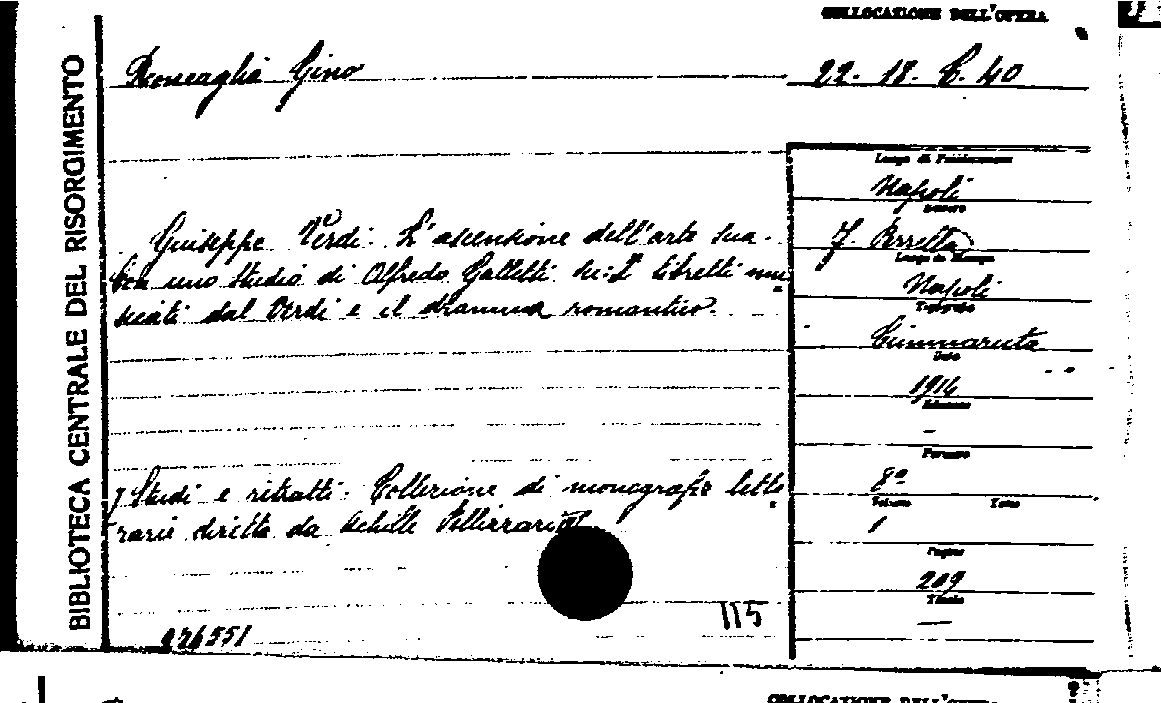 COLLOCAZIONE DELL'OPERA
BIBLIOTECA CENTRALE DEL RISORGIMENTO
Roncaglia Gino
22. 18. C. 40
Giuseppe Verdi. L'ascensione dell'arte sua.
Con uno studio di Alfredo Galletti su: I libretti mu
sicati dal Verdi e il dramma romantico.
Studi e ritratti. Collezione di monografie lette
rarie diretta da Achille Pellizzari
Luogo di Pubblicazione
Napoli
Editore
F. Perrella
Luogo di Stampa
Napoli
Tipografo
Cimmaruta
Data
1914
Edizione
–
Formato
8°
Volume Tomo
1
Pagine
209
Titolo
—
115
COLLOCAZIONE DELL'OPERA